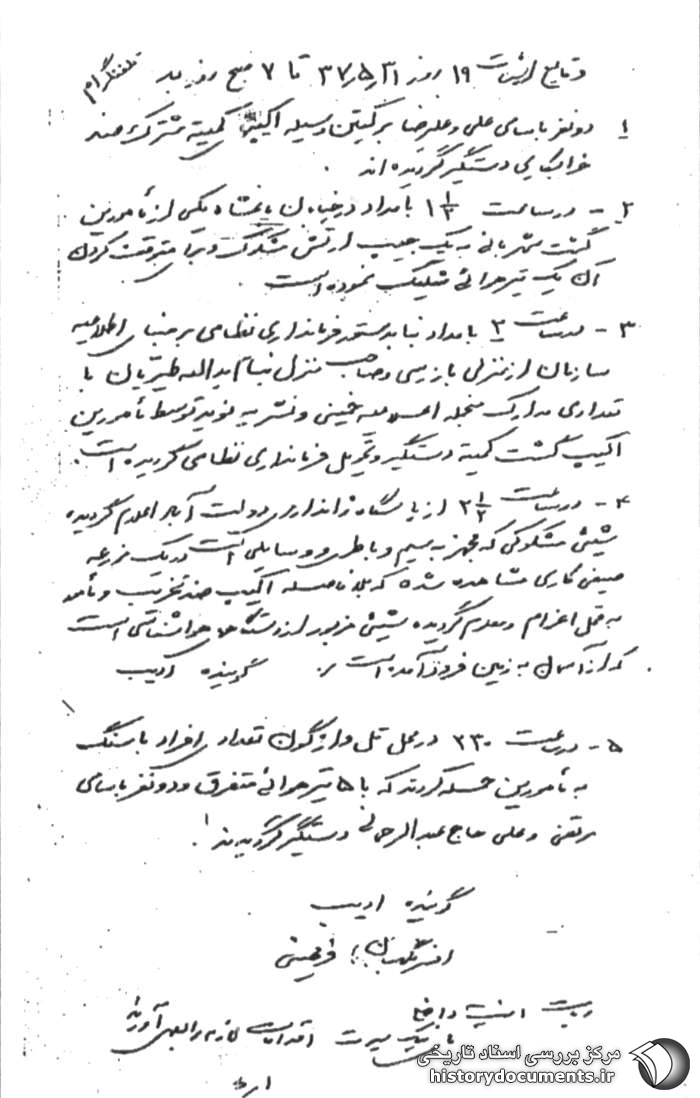 تلفنگرام
وقایع از ساعت ۱۹ روز ۳۷/۵/۳۱ تا ۷ صبح روز بعد
۱ دو نفر باسامی علی و علیرضا برگیتن وسیله اکیپ کمیته مشترک ضد
خرابکاری دستگیر گردیده اند .
۲ - در ساعت ۱ ۱/۲ بامداد در خیابان یکی از مأمورین
گشت شهربانی به یک جیپ ارتش مشکوک و برای متوقف کردن
آن یک تیر هوائی شلیک نموده است .
۳ - در ساعت ۲ بامداد بنا بدستور فرمانداری نظامی بر مبنای اطلاعیه
سازمان از منزلی بازرسی و صاحب منزل بنام یداله طیریان با
تعدادی مدارک منجمله اعلامیه خمینی و نشریه نوید توسط مأمورین
اکیپ گشت کمیته دستگیر و تحویل فرمانداری نظامی گردیده است .
۴ - در ساعت ۲ ۱/۲ از پاسگاه ژاندارمری دولت آباد اعلام گردیده
شیئی مشکوکی که مجهز به سیم و باطری و وسایلی است در یک مزرعه
صیفی کاری مشاهده شده که بلافاصله اکیپ ضد تخریب و
به محل اعزام و معلوم گردیده شیئی مزبور از دستگاه های هواشناسی است
که از آسمان به زمین فرود آمده است . گوینده ادیب
۵ - در ساعت ۲۳۰ در محل تل واژگون تعدادی افراد با سنگ
به مأمورین حمله کردند که با ۵ تیر هوائی متفرق و دو نفر باسامی
مرتضی و علی حاج عبدالرحمانی دستگیر گردیدند .
گوینده ادیب
افسر نگهبان
ریاست امنیت داخلی
اقدامات لازم را بعمل آورند
مرکز بررسی اسناد تاریخی
historydocuments.ir